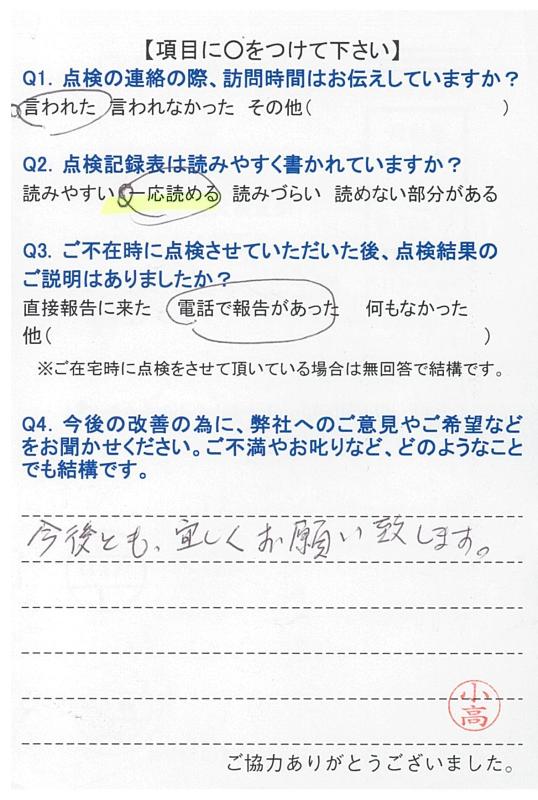 【項目に〇をつけて下さい】
Q1. 点検の連絡の際、訪問時間はお伝えしていますか？
言われた 言われなかった その他( )
Q2. 点検記録表は読みやすく書かれていますか？
読みやすい 一応読める 読みづらい 読めない部分がある
Q3. ご不在時に点検させていただいた後、点検結果の
ご説明はありましたか？
直接報告に来た 電話で報告があった 何もなかった
他( )
※ご在宅時に点検をさせて頂いている場合は無回答で結構です。
Q4. 今後の改善の為に、弊社へのご意見やご希望など
をお聞かせください。ご不満やお叱りなど、どのようなこと
でも結構です。
今後とも、宜しくお願い致します。
小
高
ご協力ありがとうございました。